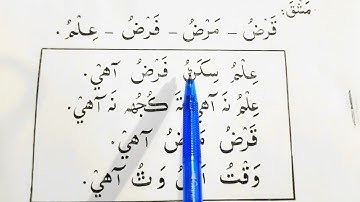 مَشْقَ:
قَرْضُ – مَرْضُ – فَرْضُ – عِلْمُ.
عِلْمُ سِکَڻُ فَرْضُ آهيْ.
عِلْمُ نَہ آهيْ تَہ ڪُجُهہ نَہ آهيْ.
قَرْضُ مَرْضُ آهيْ.
وَقْتُ وَٿُ آهيْ.